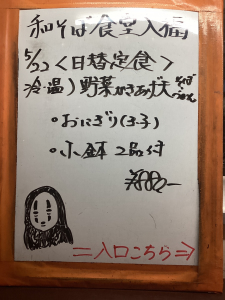 和そば食堂入福
5/22 <日替定食>
冷・温) 野菜かきあげ天 そば うどん
・おにぎり(3子)
・小鉢 2品付
=入口こちら⇒